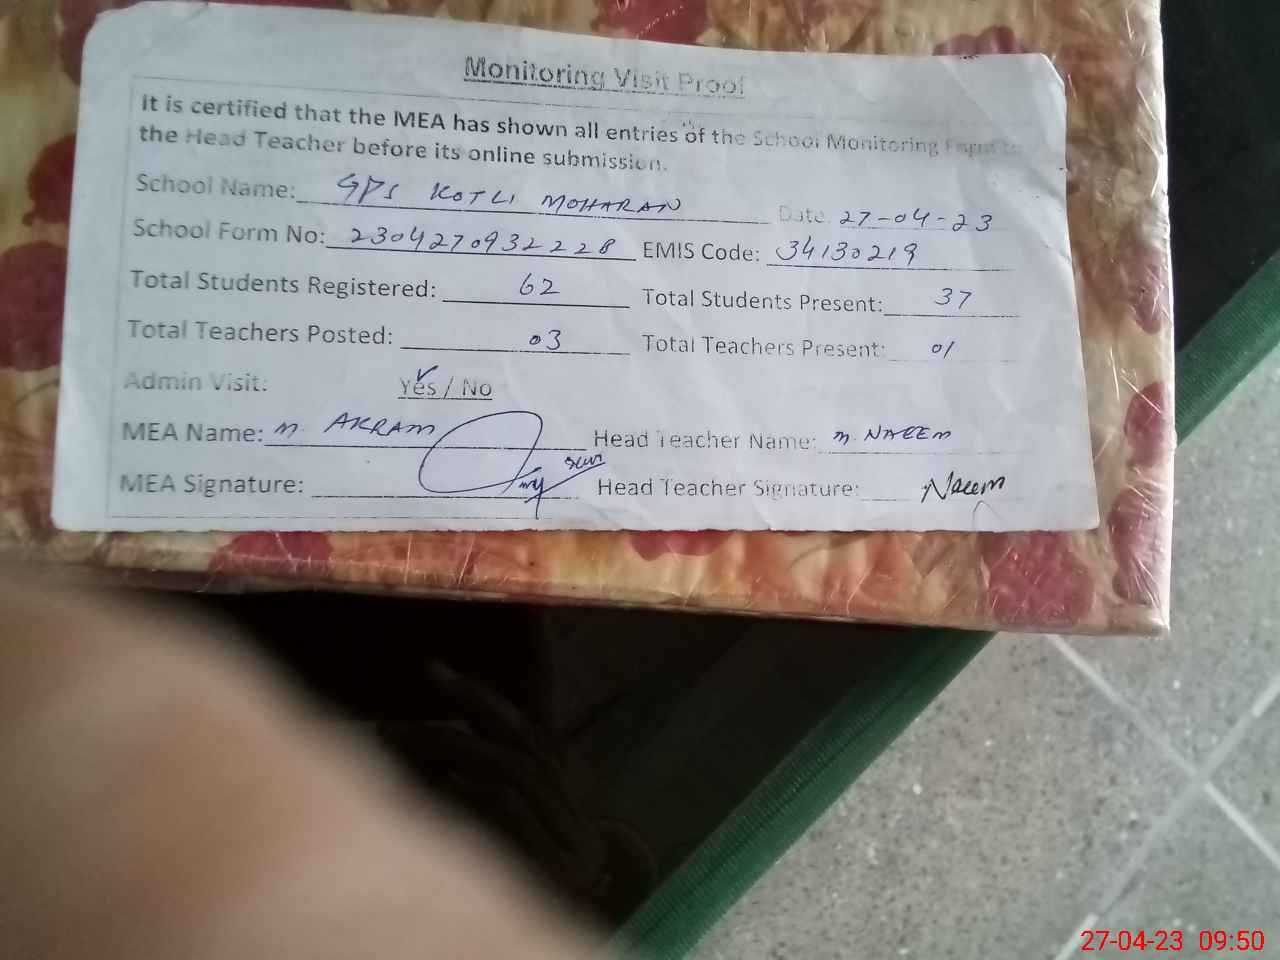 Monitoring Visit Proof
It is certified that the MEA has shown all entries of the School Monitoring Form to
the Head Teacher before its online submission.
School Name: GPS KOTLI MOHARAN Date: 27-04-23
School Form No: 2304270932228 EMIS Code: 34130219
Total Students Registered: 62 Total Students Present: 37
Total Teachers Posted: 03 Total Teachers Present: 01
Admin Visit: Yes / No
MEA Name: M. AKRAM Head Teacher Name: M. NAEEM
MEA Signature: Head Teacher Signature: Naeem
27-04-23 09:50